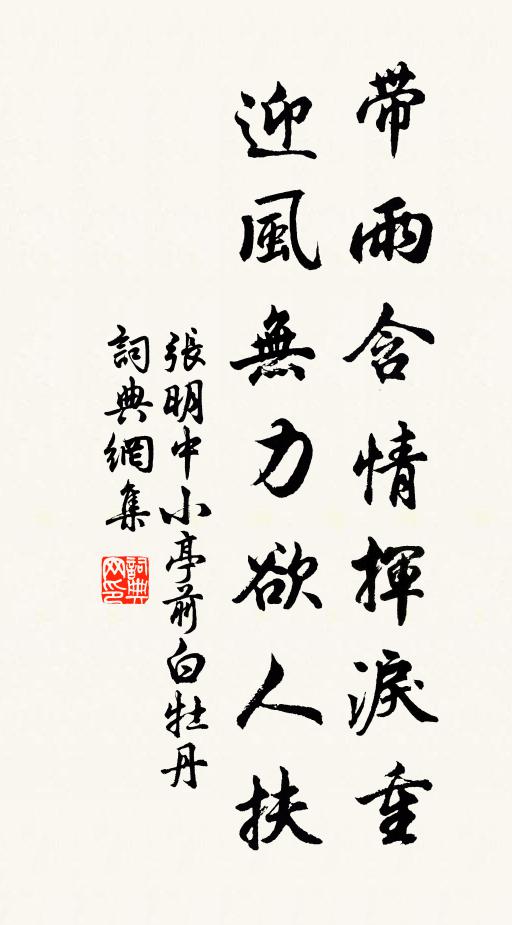 帶雨含情揮淚重
迎風無力欲人扶
張明中小亭前白牡丹
詞典網集
詞典网印